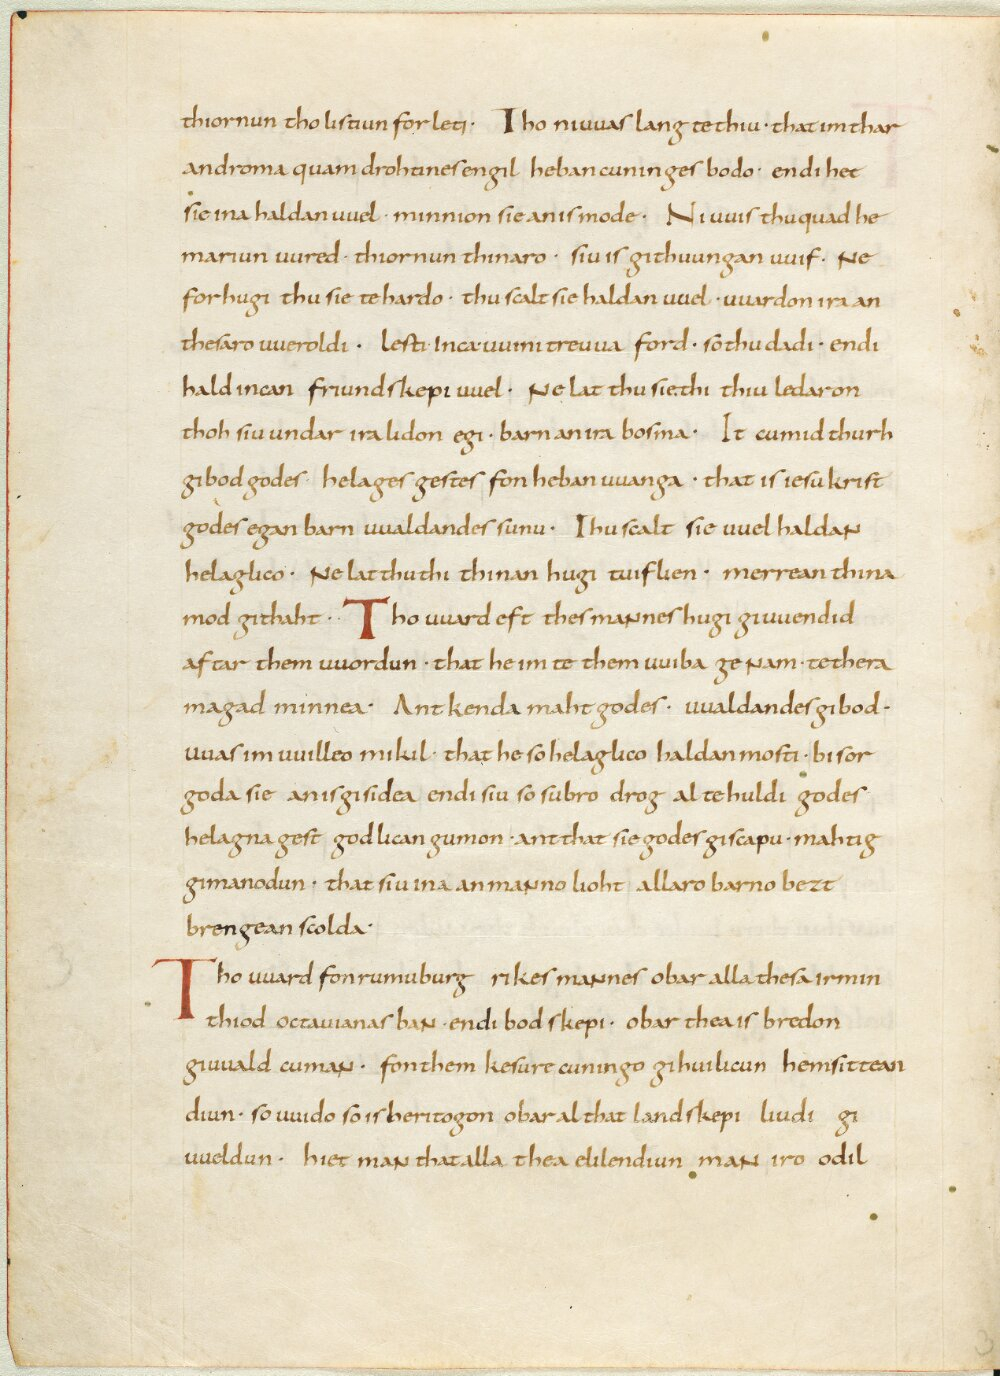 thiornun tho listiun forleti· Tho ni uuas lang te thiu· that im thar
an droma quam drohtines engil hebancuninges bodo· endi het
sie ina haldan uuel· minnion sie an is mode· Ni uuis thu quad he
mariun uured· thiornun thinaro· siu is githuungan uuif· Ne
forhugi thu sie te hardo· thu scalt sie haldan uuel· uuardon ira an
thesaro uueroldi· lesti inca uuini treuua ford· so thu dadi· endi
hald incan friundskepi uuel· Ne lat thu sie thi thiu ledaron
thoh siu undar ira lidon egi· barn an ira bosma· It cumid thurh
gibod godes· helages gestes fon hebanuuanga· that is iesu krist
godes egan barn uualdandes sunu· Thu scalt sie uuel haldan
helaglico· Ne lat thu thi thinan hugi tuiflien· merrean thina
mod githaht·· Tho uuard eft thes mannes hugi giuuendid
aftar them uuordun· that he im te them uuiba genam· te thera
magad minnea· Antkenda maht godes· uualdandes gibod·
uuas im uuilleo mikil· that he so helaglico haldan mosti· bisor
goda sie an is gisidea endi siu so subro drog al te huldi godes
helagna gest godlican gumon· antthat sie godes giscapu· mahtig
gimanodun· that siu ina an manno lioht allaro barno bezt
brengean scolda·
Tho uuard fon rumuburg rikes mannes obar alla thesa irmin
thiod octauianas ban· endi bodskepi· obar thea is bredon
giuuald cuman· fon them kesure cuningo gihuilicun hemsittean
diun· so uuido so is heritogon obar al that landskepi liudi gi
uueldun· hiet man that alla thea elilendiun man iro odil